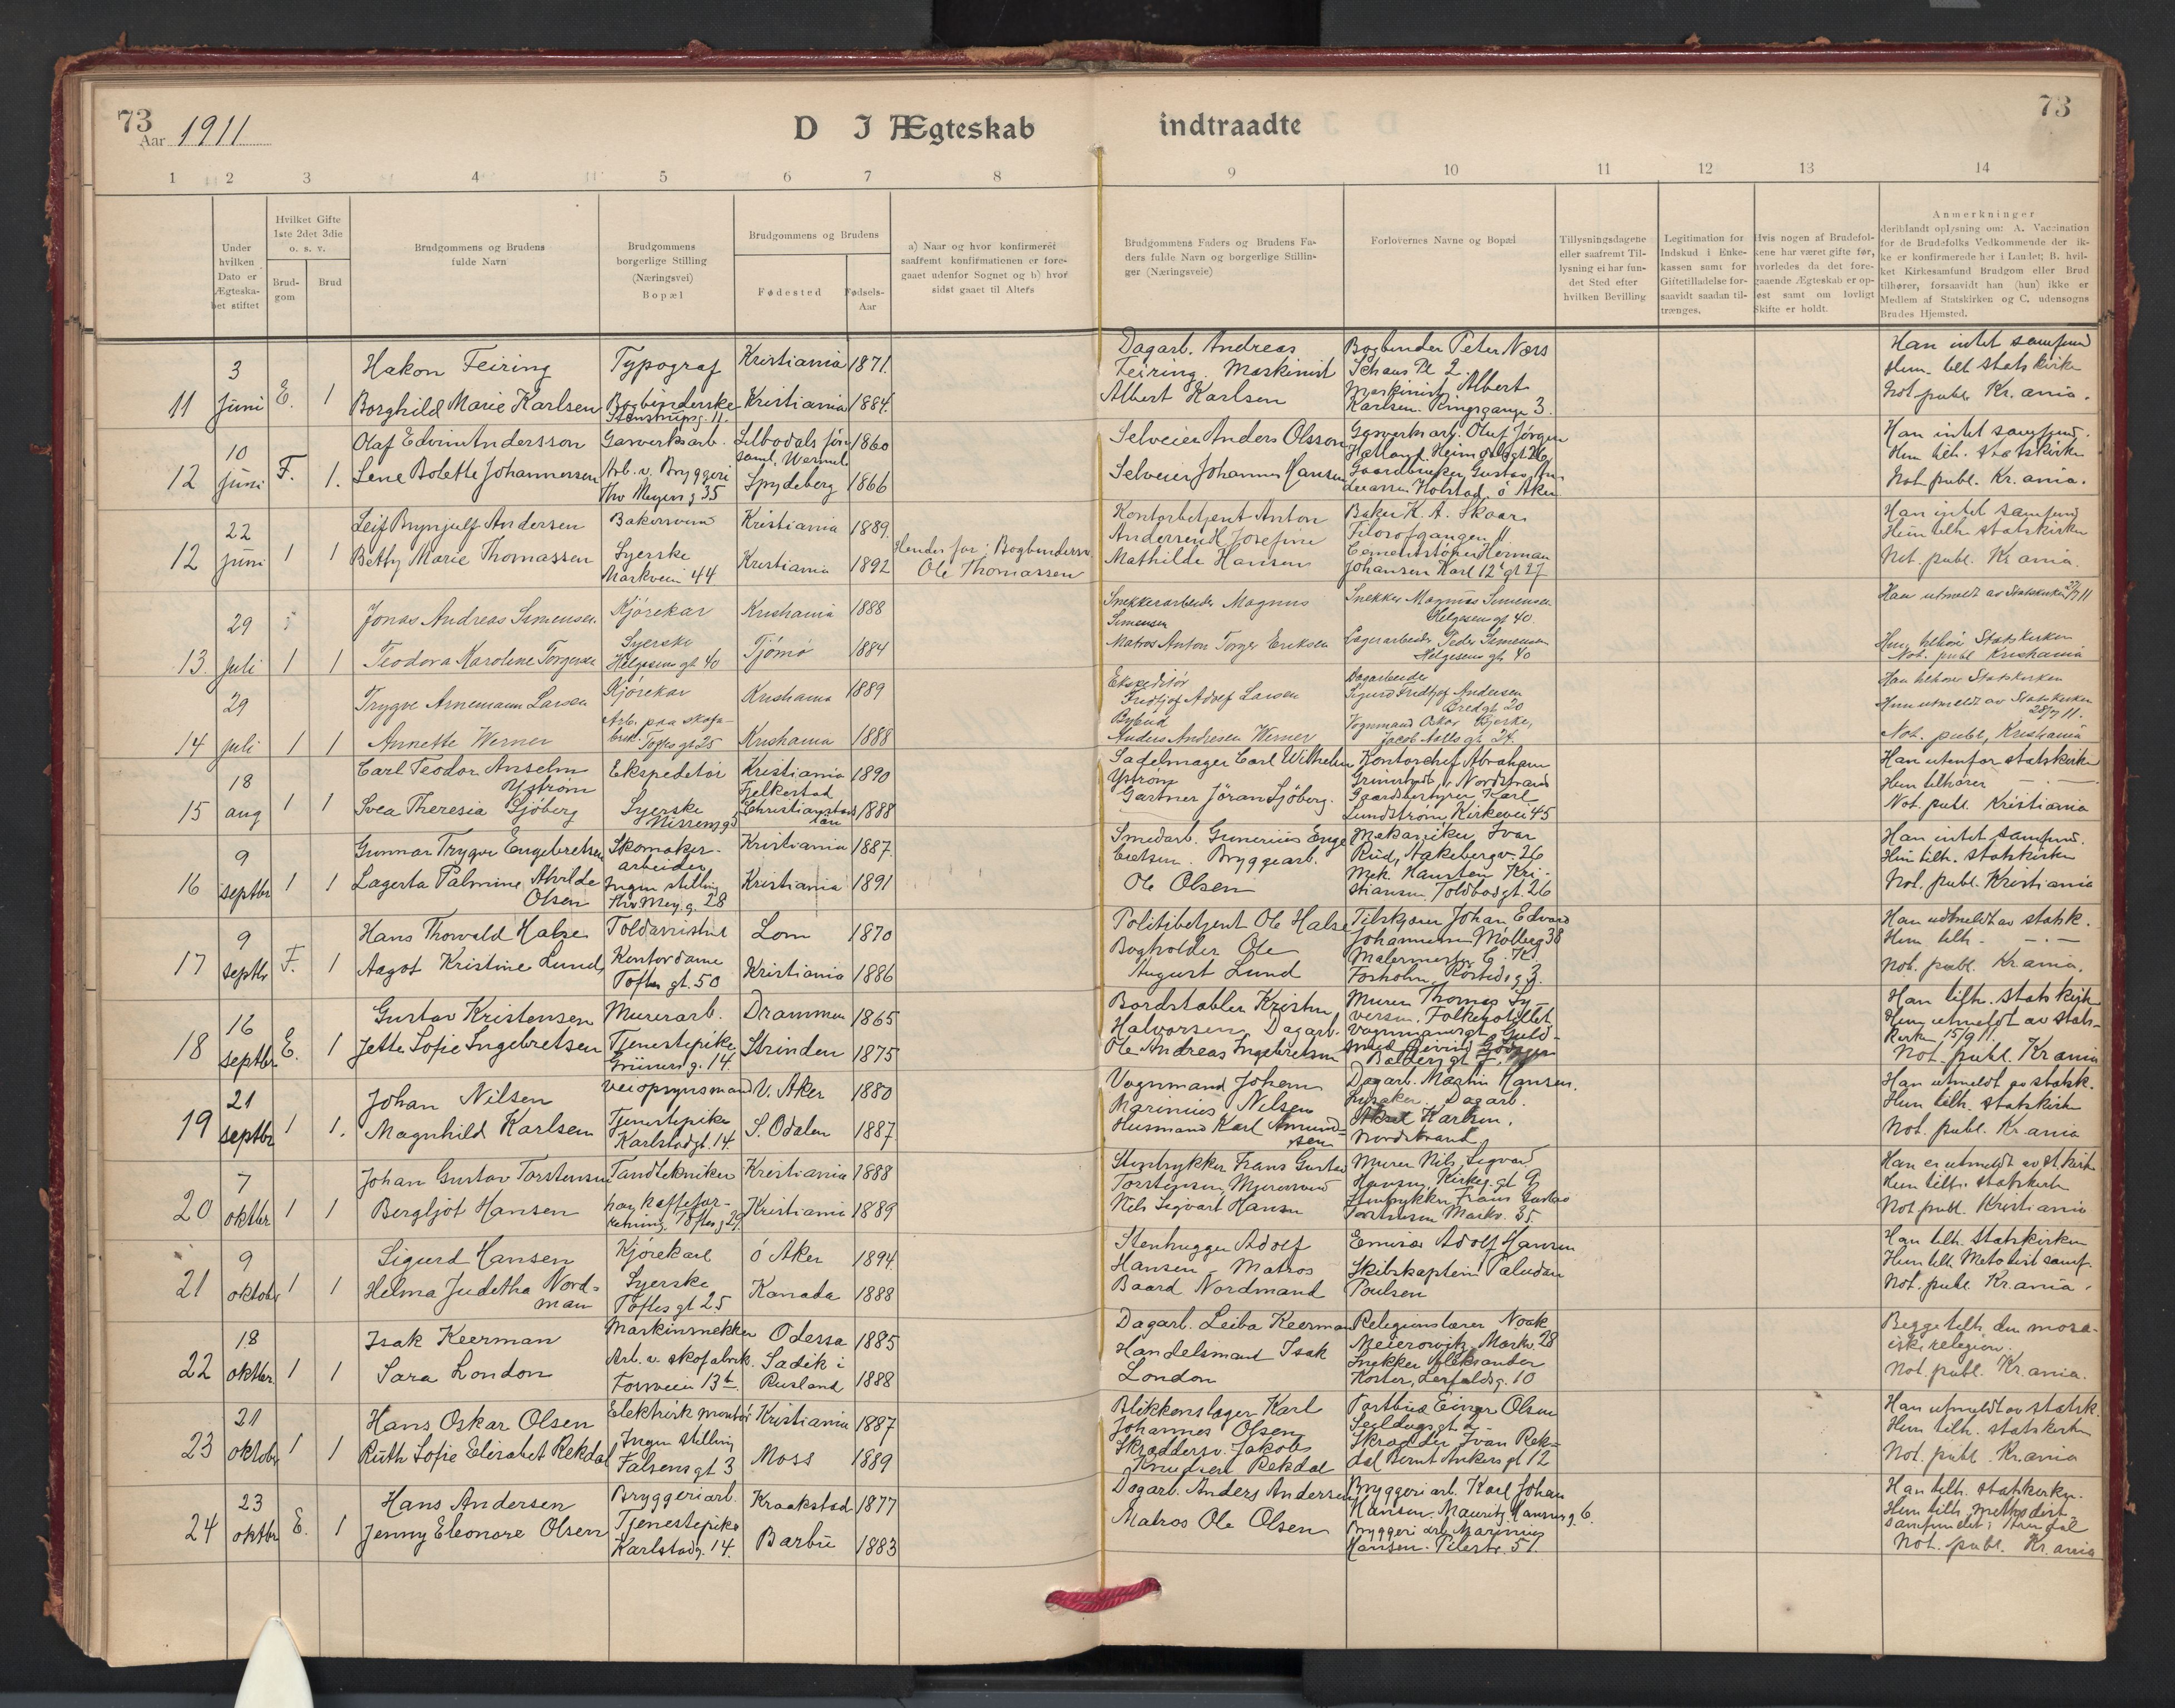 73
Aar 1911
D I Ægteskab indtraadte
73
1 2 3 4 5 6 7 8 9 10 11 12 13 14
Under hvilken Dato er Ægteska-bet stiftet
Hvilket Gifte 1ste 2det 3die o. s. v.
Brud-gom
Brud
Brudgommens og Brudens fulde Navn
Brudgommens borgerlige Stilling (Næringsvei) Bopæl
Brudgommens og Brudens
Fødested
Fødsels-Aar
a) Naar og hvor konfirmeret saafremt konfirmationen er fore-gaaet udenfor Sognet og b) hvor sidst gaaet til Alters
Brudgommens Faders og Brudens Fa-ders fulde Navn og borgerlige Stillin-ger (Næringsveie)
Forlovernes Navne og Bopæl
Tillysningsdagene eller saafremt Til-lysning ei har fun-det Sted efter hvilken Bevilling
Legitimation for Indskud i Enke-kassen samt for Giftetilladelse for-saavidt saadan til-trænges.
Hvis nogen af Brudefol-kene har været gifte før, hvorledes da det fore-gaaende Ægteskab er op-løst samt om lovligt Skifte er holdt.
Anmerkninger deriblandt oplysning om: A. Vaccination for de Brudefolks Vedkommende der ik-ke er konfirmerede her i Landet; B. hvil-ket Kirkesamfund Brudgom eller Brud tilhører, forsaavidt han (hun) ikke er Medlem af Statskirken og C. udensogns Brudes Hjemsted.
11 3 Juni E. 1
Hakon Feiring Typograf Kristiania 1871.
Borghild Marie Karlsen Bogbinderske Stenstrupsg. 11. Kristiania 1884.
Dagarb. Andreas Feiring. Maskinist Albert Karlsen
Bogbinder Peter Næss Schaus Pl 2.
Maskinist Albert Karlsen. Ringsgangen 3.
Han intet samfund
Hun tilh statskirke
Not publ. Kr.ania.
12 10 Juni F. 1.
Olaf Edvin Andersson Gasverksarb. 1860
Lene Bolette Johannersen Arb. v. Bryggeri Thv Meyers g 35 Spydeberg 1866
Selveier Anders Olsson
Selveier Johannes Hansen
Gasverksarb. Oluf Jörgen Heimdalsgt 26
Gaardbruker Gustav An-dreassen Holstad, ö Aker
Han intet samfund.
Hun tilh. statskirken
Not publ. Kr.ania.
12 22 juni 1 1
Leif Brynjulf Andersen Bakersvend Kristiania 1889.
Betty Marie Thomassen Syerske Markveien 44 Kristiania 1892
Hendes far: Bogbindersv. Ole Thomassen
Kontorbetjent Anton Andersen Josefine Mathilde Hansen
Baker K. A. Skaar Filosofgangen 11.
Cementstöper Herman Johansen Karl 12' gt 27
Han intet samfund
Hun tilh statskirken
Not. publ. Kr.ania.
13. 29 Juli 1 1
Jonas Andreas Simensen Kjörekar Kristiania 1888
Teodora Karoline Torgersen Syerske Helgesens gt 40 Tjömö 1884
Snekkerarbeider Magnus Simensen
Matros Anton Torger Eriksen
Snekker Magnus Simensen Helgesens gt 40.
Lagerarbeider Peder Simensen Helgesens gt. 40
Han utmeldt av Statskirken 27/7 11
Hun tilhöre Statskirken
Not. publ Kristiania
14 29 juli 1 1
Trygve Arnemann Larsen Kjörekar Kristiania 1889
Annette Werner Arb. paa skofa-brik. Toftes gt 25 Kristiania 1888
Ekspeditör Fridtjof Adolf Larsen
Bybud Anders Andresen Werner
Dagarbeider Sigurd Fridtjof Andersen Bredgt 20
Vognmand Oskar Bjerke, Jacob Aalls gt. 24.
Han tilhöre Statskirken
Hun utmeldt av Statskirken 28/7 11.
Not. publ, Kristiania
15 18 aug 1 1
Carl Teodor Anselm Yström Ekspeditör Kristiania 1890
Svea Theresia Sjöberg Syerske Nissens g 5 Fjelkestad Christianstads län 1888
Sadelmager Carl Wilhelm Yström
Gartner Jöran Sjöberg.
Kontorchef Abraham Nordstrand
Gaardbestyrer Karl Lundström Kirkevei 45
Han utenfor statskirken
Hun tilhører — . —
Not. publ. Kristiania
16 9 septbr 1 1
Gunnar Trygve Engebretsen Skomaker-arbeider Kristiania 1887.
Lagerta Palmine Alvilde Olsen Ingen stilling Thv. Mey. g. 28 Kristiania 1891
Smedarb. Grunerius Enge-bretsen. Bryggearb. Ole Olsen
Mekaniker Ivar Rud, Aakebergv. 26
Mek. Kri-stiansen, Toldbodgt. 26
Han intet samfund.
Hun tilh. statskirken
Not. publ. Kristiania
17 9 septbr F. 1
Hans Thorvald Halse Toldassistent Lom 1870
Aagot Kristine Lund, Kontordame Toftes gt. 50 Kristiania 1886
Politibetjent Ole Halse
Bogholder Ole August Lund
Tilskjærer Johan Edvard Johannesen Mölleg 38
Malermester C. K. Forsholm, Röstedsg 3.
Han udmeldt av statsk.
Hun tilh. — . —
Not. publ. Kr.ania.
18 16 septbr E. 1
Gustav Kristensen Murerarb. Drammen 1865
Jette Sofie Ingebretsen Tjenestepike Grüners g. 14. Strinden 1875
Bordstabler Kristen Halvorsen, Dagarb. Ole Andreas Ingebretsen
Murer Thomas Sy-versen. Folkehotellet Vognmandsgt Guld-smed Eivind Balders gt 7.
Han tilh. statskirke
Hun utmeldt av stats-kirken 15/9 11.
Not. publ. Kr.ania
19 21 septbr 1 1.
Johan Nilsen Veiopsynsmand V. Aker 1880
Magnhild Karlsen Tjenestepike Karlstadgt. 14. S. Odalen 1887.
Vognmand Johan Marinius Nilsen
Husmand Karl Amund-sen
Dagarb. Martin Hansen. Lysaker. Dagarb. Aksel Karlsen. Nordstrand.
Han utmeldt av statsk.
Hun tilh. statskirke
Not. publ. Kr.ania
20 7 oktbr 1 1
Johan Gustav Torstensen Tandtekniker Kristiania 1888
Bergljot Hansen har kaffefor-retning, Toftes g 29. Kristiania 1889
Stentrykker Frans Gustav Torstensen, Murersvend Nils Sigvart Hansen
Murer Nils Sigvard Hansen, Kirkeg. gt 9
Stentrykker Frans Gustav Torstensen Markv. 35.
Han er utmeldt av st.kirke
Hun tilh. statskirke
Not publ. Kristiania
21 9 oktobr 1 1
Sigurd Hansen Kjörekarl ö Aker 1894
Helma Judetha Nord-man Syerske Toftes gt 25 Kanada 1888
Stenhugger Adolf Hansen Matros Baard Nordmand
Emissær Adolf Hansen
Skibskaptein Paludan Poulsen
Han tilh. statskirken
Hun tilh. Metodist samf.
Not. publ. Kr.ania.
22 18 oktbr. 1 1
Isak Keerman Maskinsnekker Odessa 1885
Sara London Arb. v. skofabrik. Fossveien 13 b. Sadik i Rusland 1888
Dagarb. Leiba Keerman
Handelsmand Isak London
Religionslærer Noak Meierowitz, Markv. 28
Snekker Aleksander Koster, Lerfaldsg. 10
Begge tilh. den mosa-iske religion.
Not. publ. Kr.ania.
23 21 oktobr 1 1
Hans Oskar Olsen Elektrisk montör Kristiania 1887
Ruth Sofie Elisabet Rekdal Ingen stilling Falsens gt 3 Moss 1889
Blikkenslager Karl Johannes Olsen
Skræddersv. Jakob Knudsen Rekdal
Postbud Einar Olsen
Skrædder Ivan Rek-dal Bernt Ankers gt 12
Han utmeldt av statsk.
Hun tilh. statskirken
Not. publ. Kr.ania
24 23 oktbr E. 1
Hans Andersen Bryggeriarb. Kraakstad 1877
Jenny Eleonore Olsen Tjenestepike Karlstadg. 14. Barbu 1883
Dagarb. Anders Andersen
Matros Ole Olsen
Bryggeri arb. Karl Johan Hansen. Mauritz Hansens g. 6.
Bryggeri arb. Marinius Hansen. Pilestr. 51.
Han tilh. statskirken.
Hun tilh. methodist samfundet i Arendal
Not. publ. Kr.ania